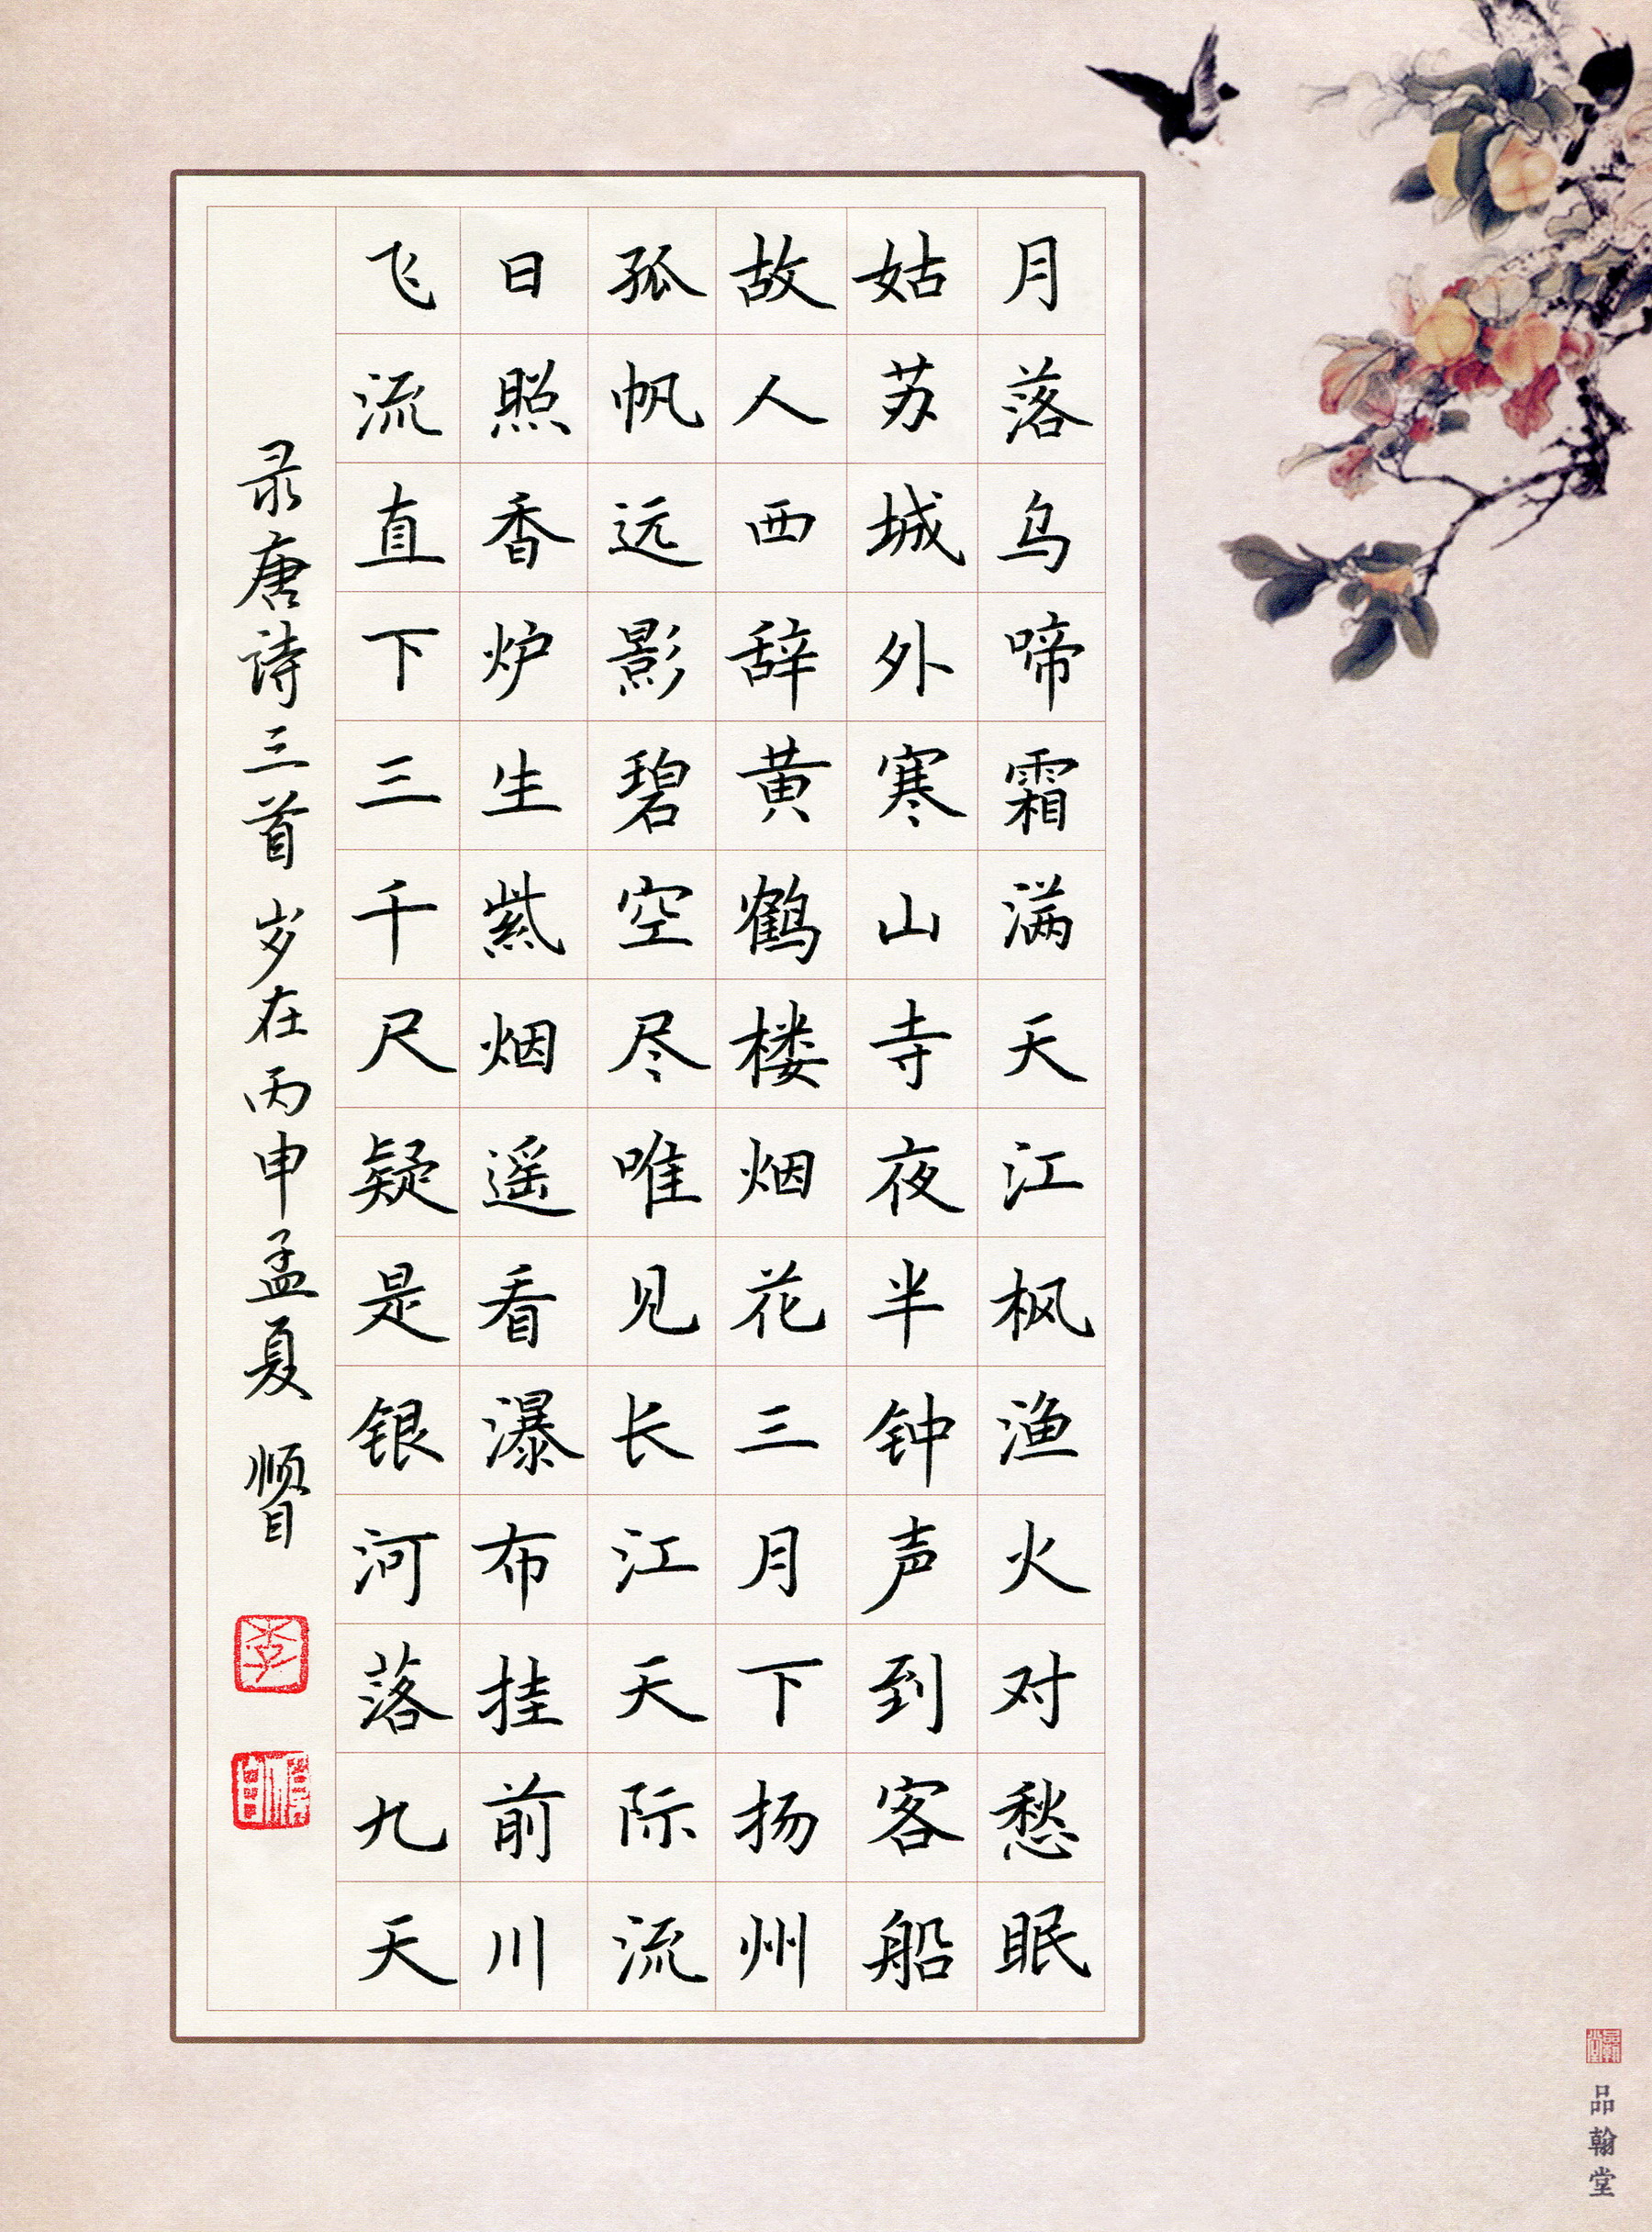 月落乌啼霜满天江枫渔火对愁眠
姑苏城外寒山寺夜半钟声到客船
故人西辞黄鹤楼烟花三月下扬州
孤帆远影碧空尽唯见长江天际流
日照香炉生紫烟遥看瀑布挂前川
飞流直下三千尺疑是银河落九天
录唐诗三首 岁在丙申孟夏 顺
李
品翰堂
品翰堂